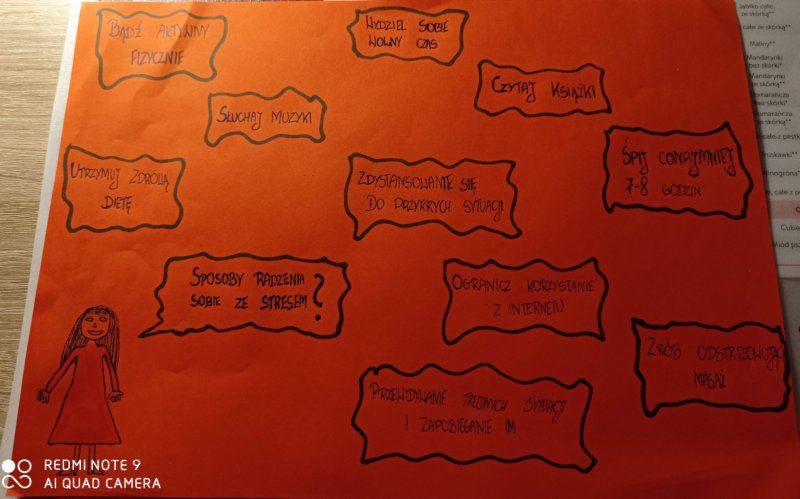 BĄDŹ AKTYWNY
FIZYCZNIE
WYDZIEL SOBIE
WOLNY CZAS
CZYTAJ KSIĄŻKI
SŁUCHAJ MUZYKI
ŚPIJ CONAJMNIEJ
7-8 GODZIN
UTRZYMUJ ZDROWĄ
DIETĘ
ZDYSTANSOWANIE SIĘ
DO PRZYKRYCH SYTUACJI
SPOSOBY RADZENIA
SOBIE ZE STRESEM?
OGRANICZ KORZYSTANIE
Z INTERNETU
ZRÓB ODSTRESOWUJĄCY
MASAŻ
PRZEWIDYWANIE TRUDNYCH SYTUACJI
I ZAPOBIEGANIE IM
REDMI NOTE 9
AI QUAD CAMERA
Jabłko całe,
ze skórką**
całe ze skórką**
Maliny**
Mandarynki
bez skórki*
Mandarynki
ze skórką**
Pomarańcza
bez skórki*
Pomarańcza
ze skórką**
całe z pestką
Truskawki**
Winogrona*
całe z
Cukier
Miód